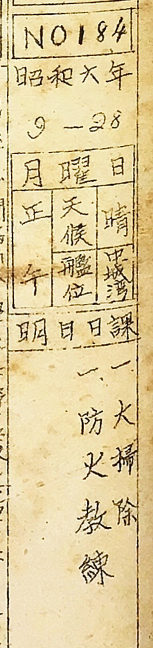 NO184
昭和六年
9-28
月曜日
正午
天候
晴
艦位
中城湾
明日日課
一、大掃除
一、防火教練